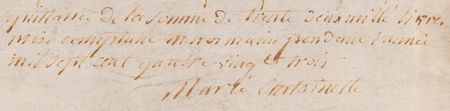 quittance de la somme de trente deux mille livres
mise comptant en nos mains pendant l'année
mil sept cent quatre vingt trois
Marie Antoinette